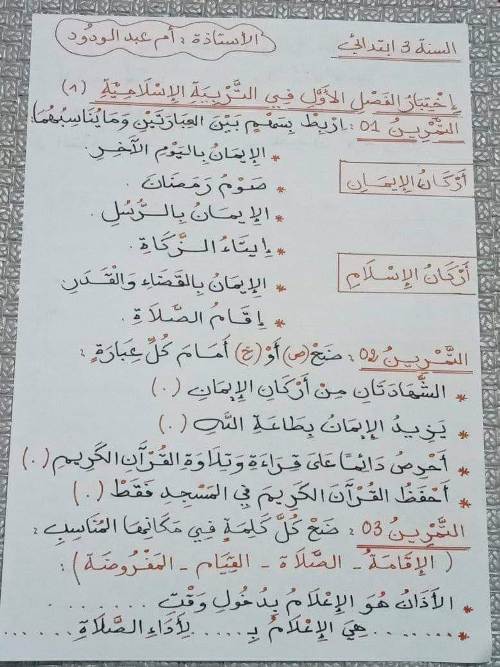 السنة 3 ابتدائي
الأستاذة : أم عبد الودود
إِخْتِبَارُ الفَصْلِ الأَوَّلِ فِي التَّرْبِيَةِ الإِسْلَامِيَّةِ (1)
التَّمْرِينُ 01 : اِرْبِطْ بِسَهْمٍ بَيْنَ العِبَارَتَيْنِ وَمَا يُنَاسِبُهُمَا:
* الإِيمَانُ بِاليَوْمِ الآخِرِ.
أَرْكَانُ الإِيمَانِ
* صَوْمُ رَمَضَانَ.
* الإِيمَانُ بِالرُّسُلِ.
* إِيتَاءُ الزَّكَاةِ.
أَرْكَانُ الإِسْلَامِ
* الإِيمَانُ بِالقَضَاءِ وَالْقَدَرِ
* إِقَامُ الصَّلَاةِ.
التَّمْرِينُ 02 : ضَعْ (ص) أَوْ (خ) أَمَامَ كُلِّ عِبَارَةٍ :
* الشَّهَادَتَانِ مِنْ أَرْكَانِ الإِيمَانِ (.)
* يَزِيدُ الإِيمَانُ بِطَاعَةِ اللَّهِ (.)
* أَحْرِصُ دَائِمًا عَلَى قِرَاءَةِ وَتِلَاوَةِ القُرْآنِ الكَرِيمِ (.)
* أَحْفَظُ القُرْآنَ الكَرِيمَ فِي المَسْجِدِ فَقَطْ (.)
التَّمْرِينُ 03 : ضَعْ كُلَّ كَلِمَةٍ فِي مَكَانِهَا المُنَاسِبِ :
( الإِقَامَةُ - الصَّلَاةَ - القِيَامِ - المَفْرُوضَةِ ) :
* الأَذَانُ هُوَ الإِعْلَامُ بِدُخُولِ وَقْتِ ..........
* ........ هِيَ الإِعْلَامُ بِـ..... لِأَدَاءِ الصَّلَاةِ .....